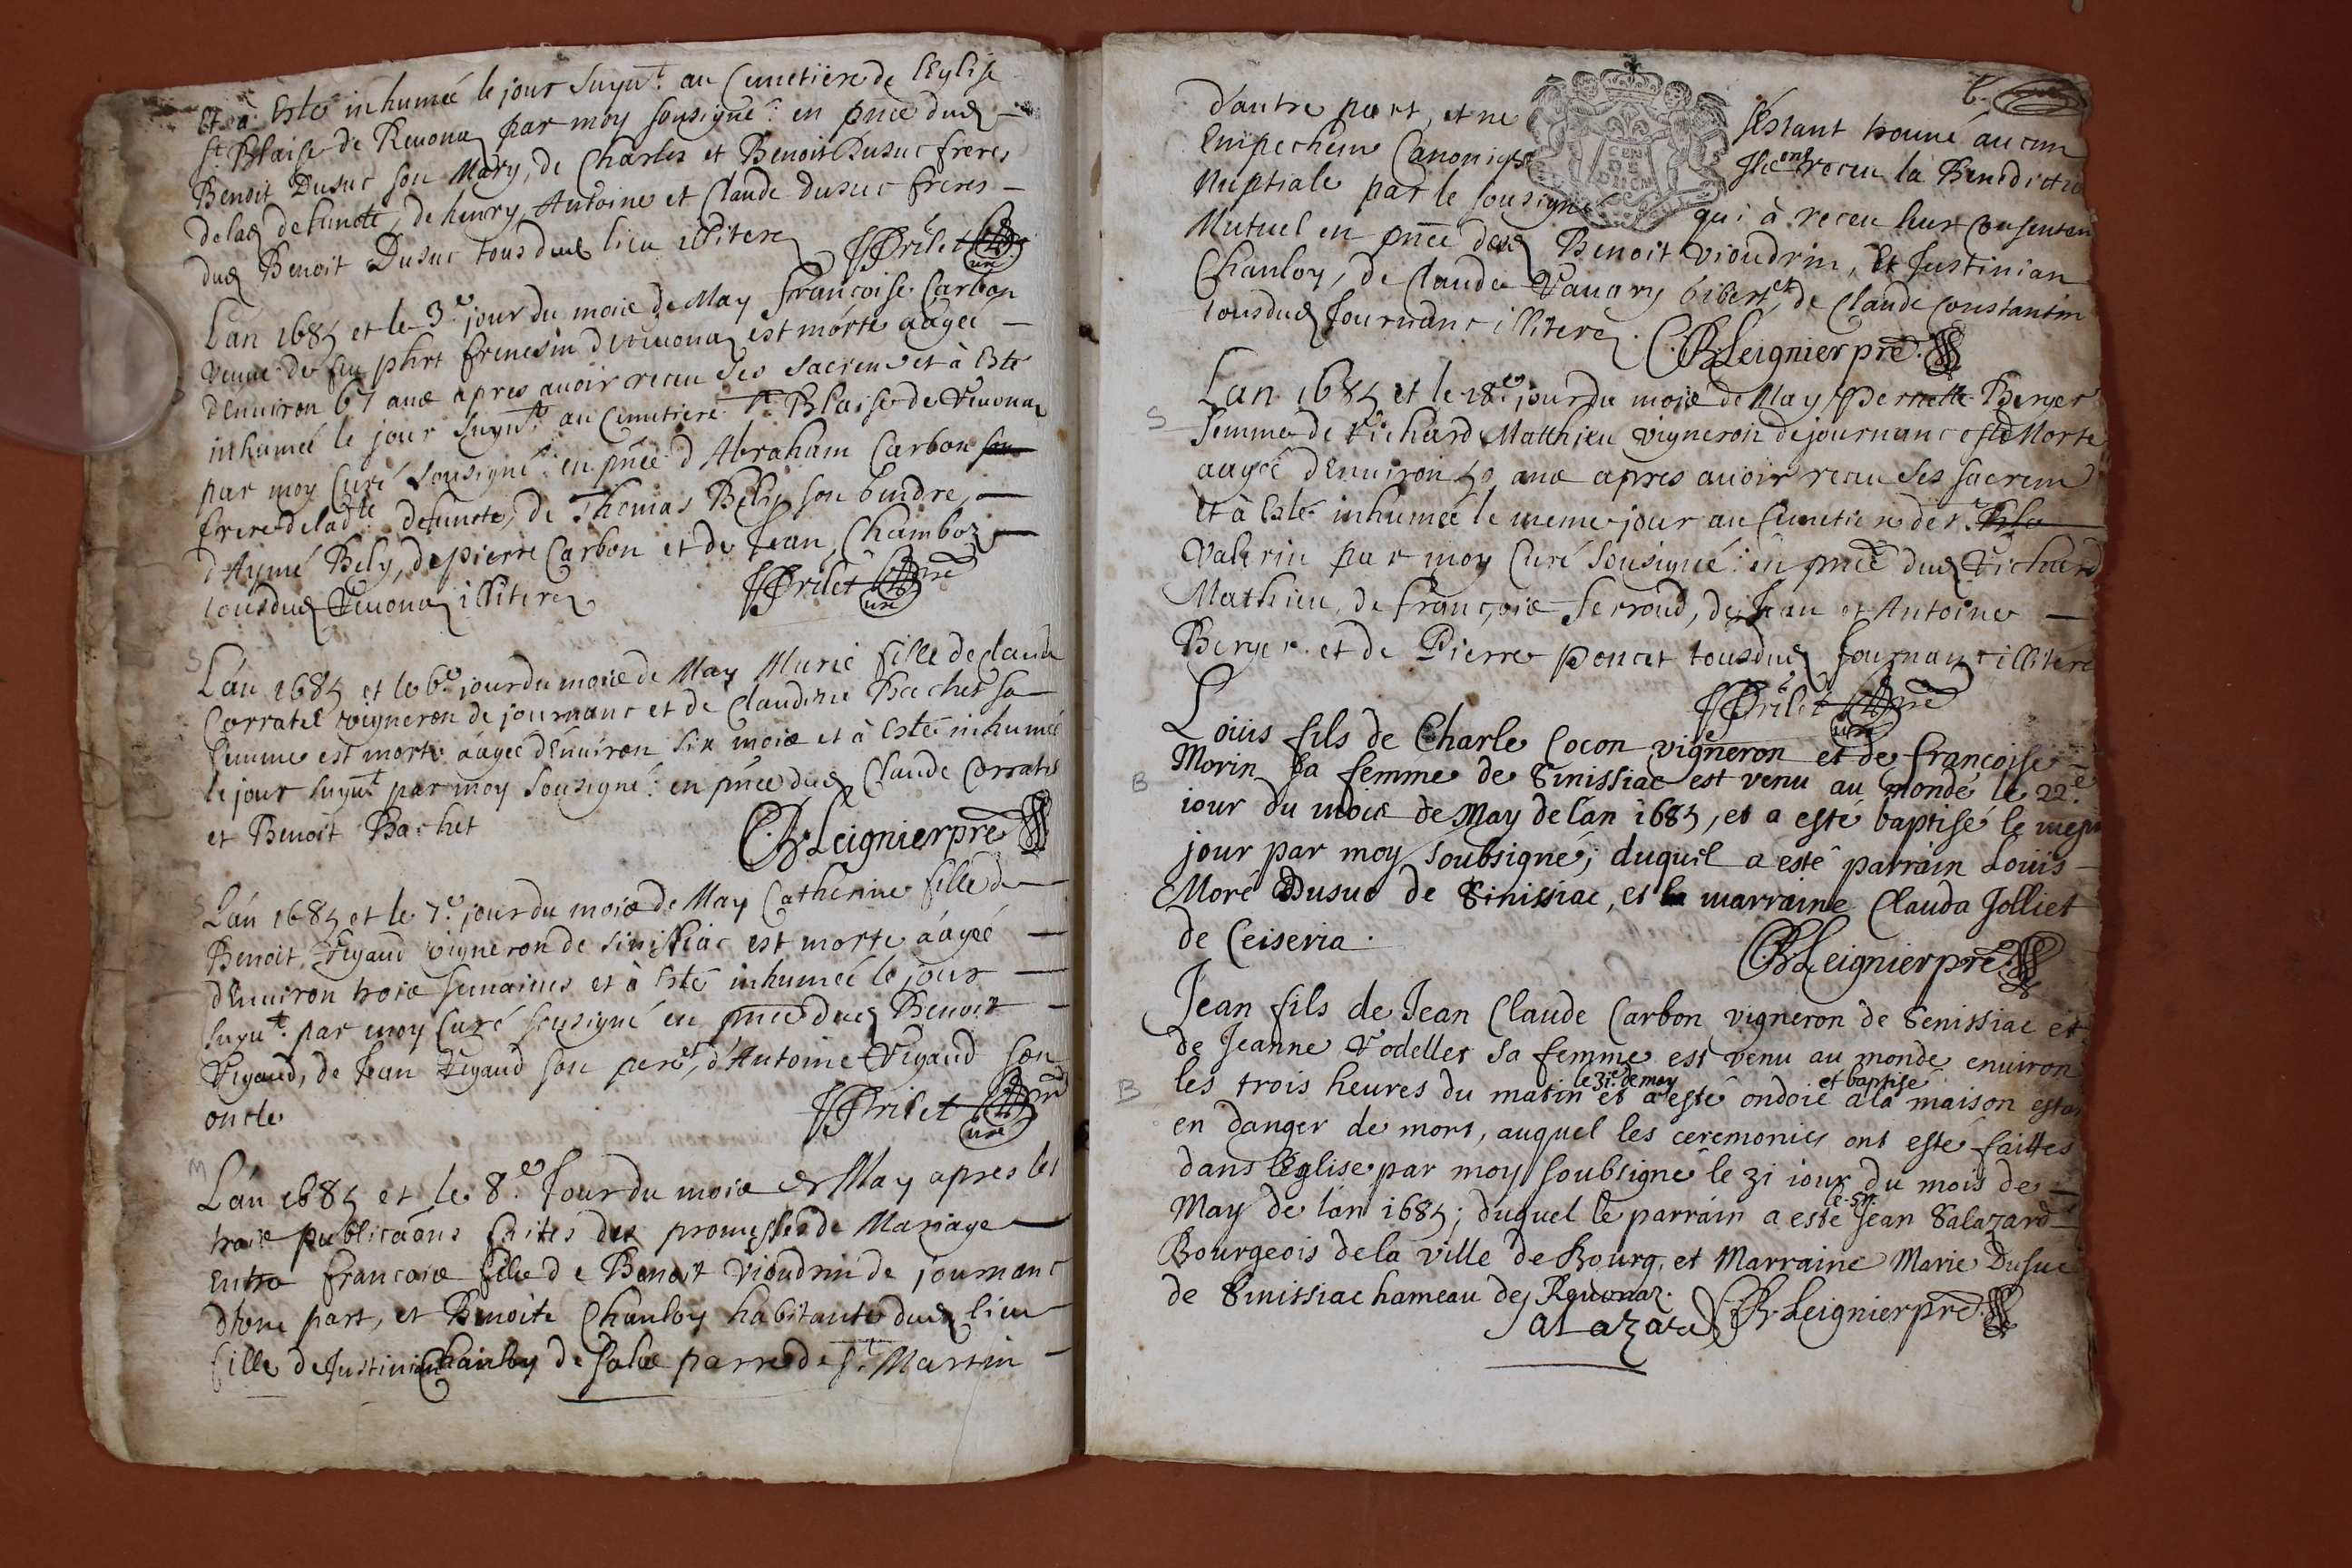 Et a Esté inhumeé le jour Suyut. au Cimetiere de l'Eglise
St Blaise de Reuonaz par moy sousigné: en pñce dud
Benoit Dusuc son Mary, de Charles et Benoit Dusuc freres
de lad defuncte, de henry Antoine et Claude Dusuc freres
dud Benoit Dusuc tous dud lieu illiterez JJPrilet
curé
L'an 1685 et le 3e jour du moie de May françoise Carbon
veuue de feu phrt frenesin de reuonaz est morte aageé
d'Enuiron 67 ans apres auoir receu Ses Sacrem et à Esté
inhumeé le jour Suyut. au Cimetiere St Blaise de Reuonaz
par moy Curé Sousigné: en pñce d'Abraham Carbon
frere de ladte defuncte, de Thomas Bely son Gendre,
d'Aymé Bely, de pierre Carbon et de Jean Chamboz
tousdud Reuonaz illiterez JJPrilet
curé
S
L'an 1685 et le 6e jour du moie de May Marie fille de Claude
Corratel vigneron de journanc et de Claudine Bachet sa
femme est morte aageé d'Enuiron Six moie et à Esté inhumeé
le jour Suyut par moy Sousigné: en pñce dud Claude Corratel
et Benoit Bachet CBLeignier pre
S
L'an 1685 et le 7e jour du moie de May Catherine fille de
Benoit Vigaud vigneron de Sinissiac est morte aageé
d'Enuiron troie semaines et à Esté inhumeé le jour
Suyut. par moy Curé sousigné en pñce dud Benoit
Vigaud, de Jean Vigaud son pere, et d'Antoine Vigaud son
oncle JJPrilet
curé
M
L'an 1685 et le 8e Jour du moie de May apres les
troie publicãons faites des promesses de Mariage
Entre françoie fils de Benoit Vioudrin de journanc
d'hune part, et Benoite Chanloy habitante dud lieu
fille de Justinian Chanloy de Salie parre de St Martin
d'autre part, et ne s'Estant trouué aucun
Empechem Canonique Ils ont receu la Benedictio
Nuptiale par le sousigné qui à receu leur Consentem
Mutuel en pñce desd Benoit Vioudrin, Et Justinian
Chanloy, de Claude Vauory Gibert, et de Claude Constantin
tousdud Journanc illiterez. CBLeignier pre.
S
L'an 1685 et le 18e jour du moie de May Pernette Berger
femme de Richard Matthieu vigneron de journanc est Morte
aageé d'Enuiron 50 ans apres auoir receu Ses sacrem
Et à Esté inhumeé le meme jour au Cimetiere de St
Valerin par moy Curé Sousigné: en pñce dud Richard
Mathieu, de françoie Ferroud, de Jean et Antoine
Berger et de Pierre Poncet tousdud Journanc illitere
JJPrilet
curé
B
Loüis fils de Charle Cocon vigneron et de françoise
Morin sa femme de Sinissiac est venu au monde le 22e
iour du moie de May de l'an 1685, et a esté baptisé le mesm
jour par moy soubsigné; duquil a esté parrain Loüis
Moré Dusuc de Sinissiac, et la marraine Clauda Jolliet
de Ceiseria. CBLeignier pre.
B
Jean fils de Jean Claude Carbon vigneron de Senissiac et
de Jeanne Vodelles sa femme est venu au monde enuiron
les trois heures du matin le 31e de may et a esté ondoié et baptisé a la maison estan
en danger de mort, auquel les ceremonies ont esté faittes
dans l'Eglise par moy soubsigné le 31 iour du mois de
May de l'an 1685; duquel le parrain a esté le Sr. Jean Salazard
Bourgeois de la ville de Bourg, et Marraine Marie Dusuc
de Sinissiac hameau de Reuonaz.
Salazard CBLeignier pre.